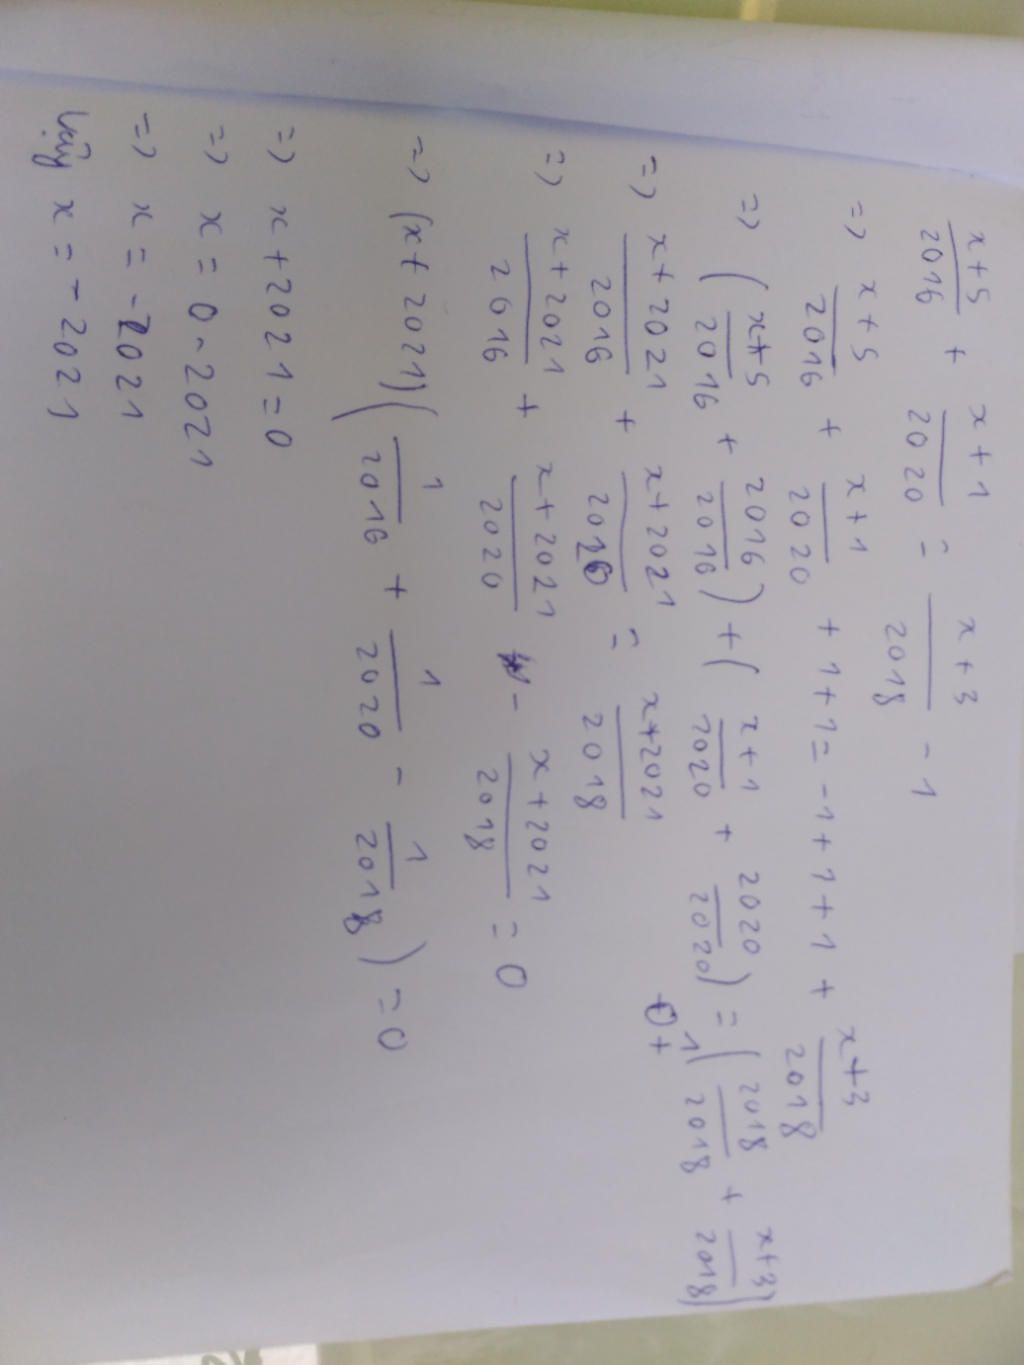 x+5/2016 + x+1/2020 = x+3/2018 - 1
=> x+5/2016 + x+1/2020 + 1+1 = -1+1+1+ x+3/2018
=> (x+5/2016 + 2016/2016) + (x+1/2020 + 2020/2020) = (2018/2018 + x+3/2018)
=> x+2021/2016 + x+2021/2020 = x+2021/2018
=> x+2021/2016 + x+2021/2020 - x+2021/2018 = 0
=> (x+2021)(1/2016 + 1/2020 - 1/2018) = 0
=> x+2021=0
=> x = 0-2021
=> x = -2021
Vậy x = -2021